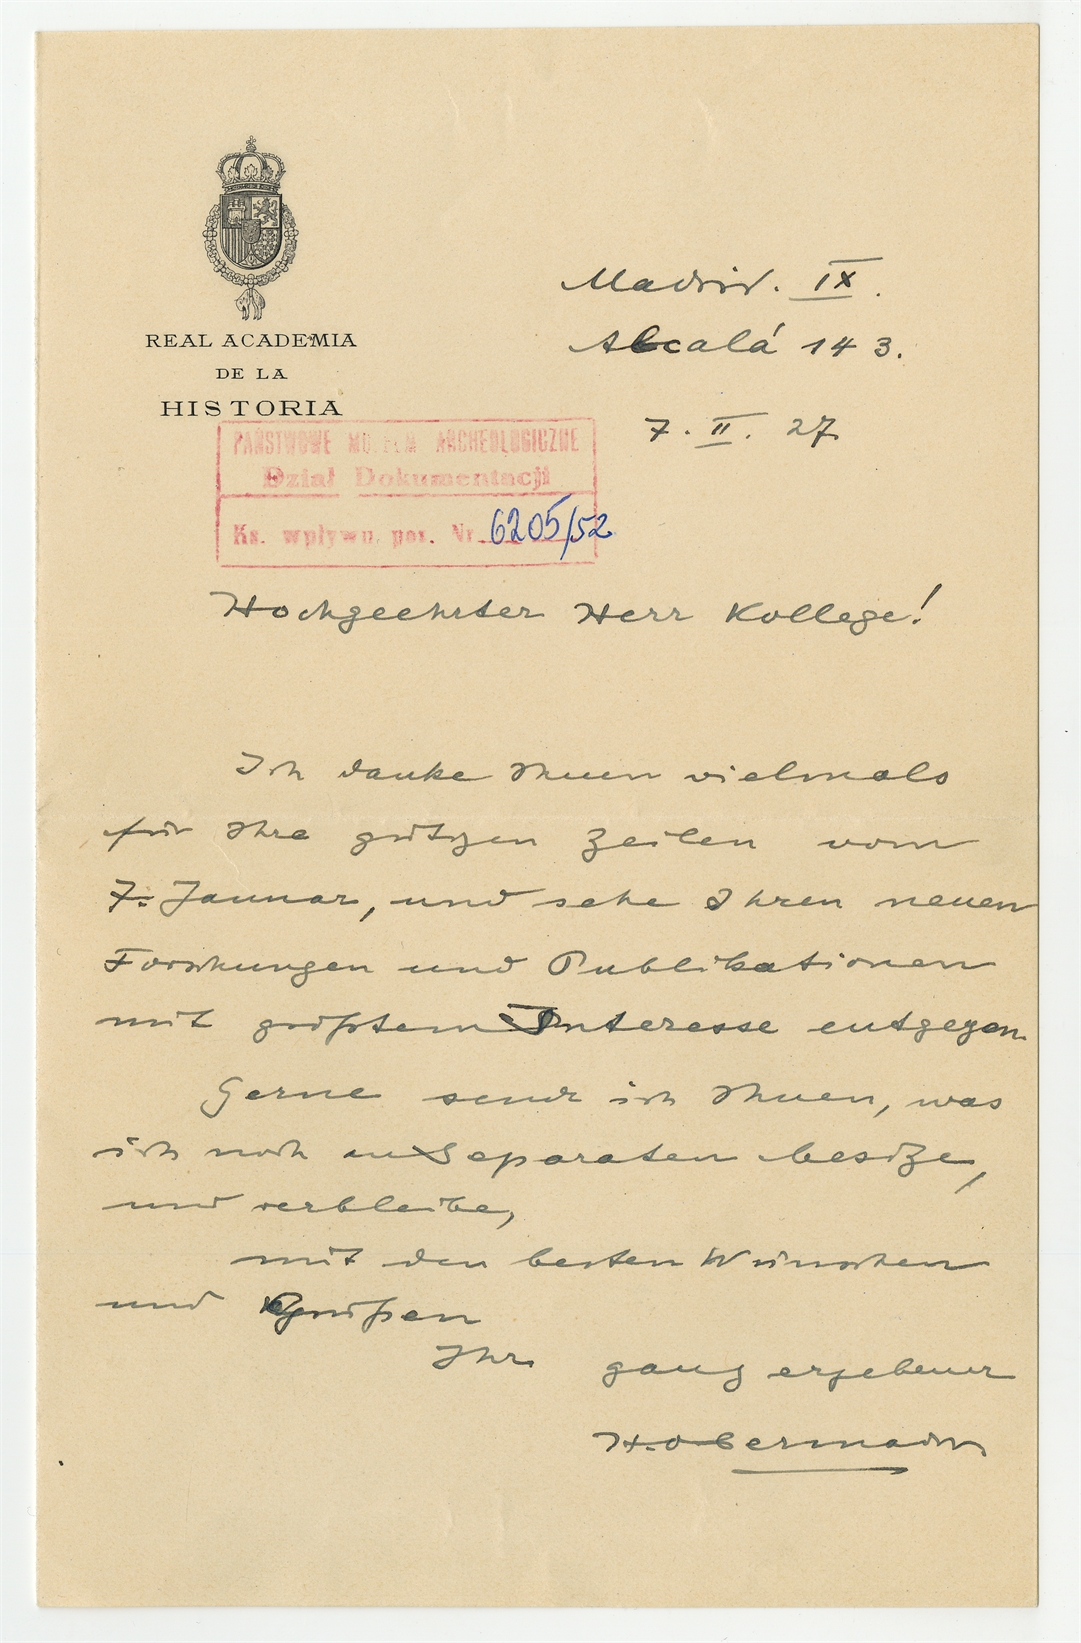 REAL ACADEMIA
DE LA
HISTORIA
Madrid. IX.
Alcalá 143.
7. II. 27.
PAŃSTWOWE MUZEUM ARCHEOLOGICZNE
Dział Dokumentacji
Ks. wpływu, poz. Nr. 6205/52
Hochgeehrter Herr Kollege!
Ich danke Ihnen vielmals
für Ihre gütigen Zeilen vom
7. Januar, und sehe Ihren neuen
Forschungen und Publikationen
mit größtem Interesse entgegen.
Gerne sende ich Ihnen, was
ich noch an Separaten besitze,
und verbleibe,
mit den besten Wünschen
und Grüßen
Ihr ganz ergebener
H. Obermaier